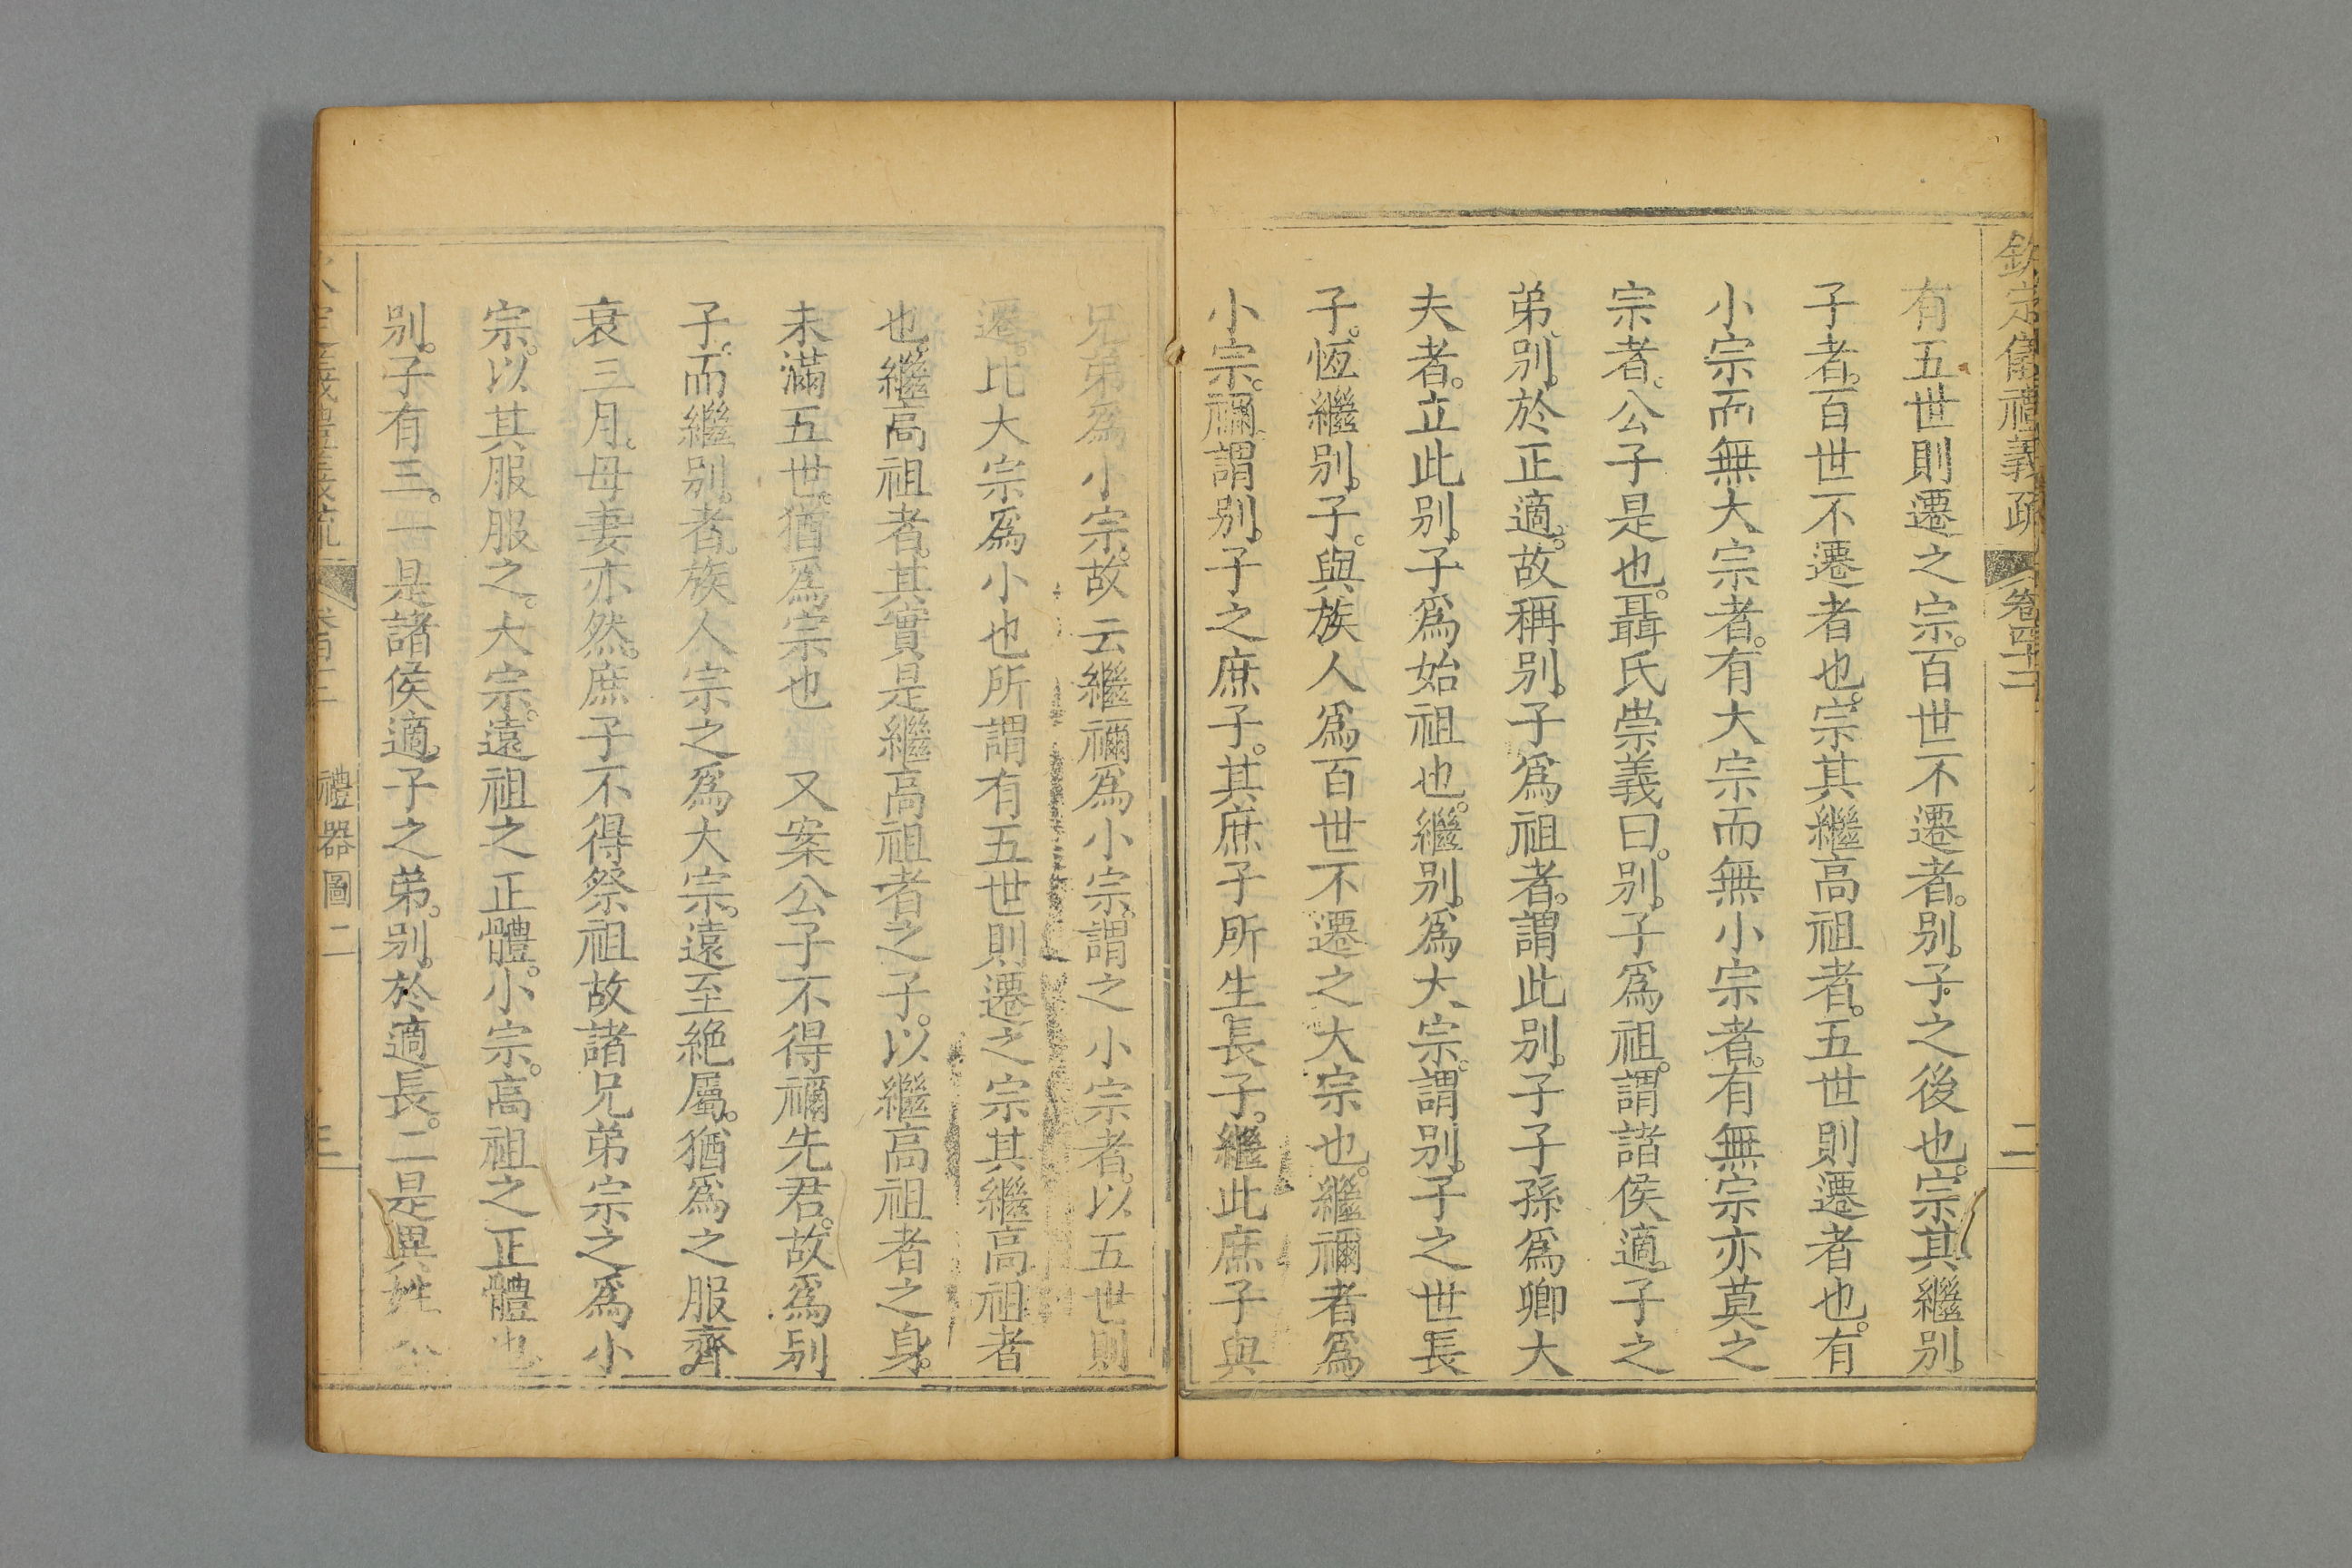 欽定儀禮義疏 卷四十二 二
有五世則遷之宗。百世不遷者。别子之後也。宗其繼别。
子者。百世不遷者也。宗其繼高祖者。五世則遷者也。有
小宗而無大宗者。有大宗而無小宗者。有無宗亦莫之
宗者。公子是也。聶氏崇義曰。别子爲祖。謂諸侯適子之
弟。别於正適。故稱别子爲祖者。謂此别子子孫爲卿大
夫者。立此别子爲始祖也。繼别爲大宗。謂别子之世長
子。恆繼别子。與族人爲百世不遷之大宗也。繼禰者爲
小宗。禰謂别子之庶子。其庶子所生長子。繼此庶子與
兄弟爲小宗。故云繼禰爲小宗。謂之小宗者。以五世則
遷。比大宗爲小也所謂有五世則遷之宗其繼高祖者
也。繼高祖者。其實是繼高祖者之子。以繼高祖者之身。
未滿五世。猶爲宗也 又案公子不得禰先君。故爲别
子。而繼别者。族人宗之爲大宗。遠至絶屬。猶爲之服齊
衰三月。母妻亦然。庶子不得祭祖故諸兄弟宗之爲小
宗。以其服服之。大宗。遠祖之正體。小宗。高祖之正體也
别子有三。一是諸侯適子之弟。别於適長。二是異姓公
禮器圖二 三